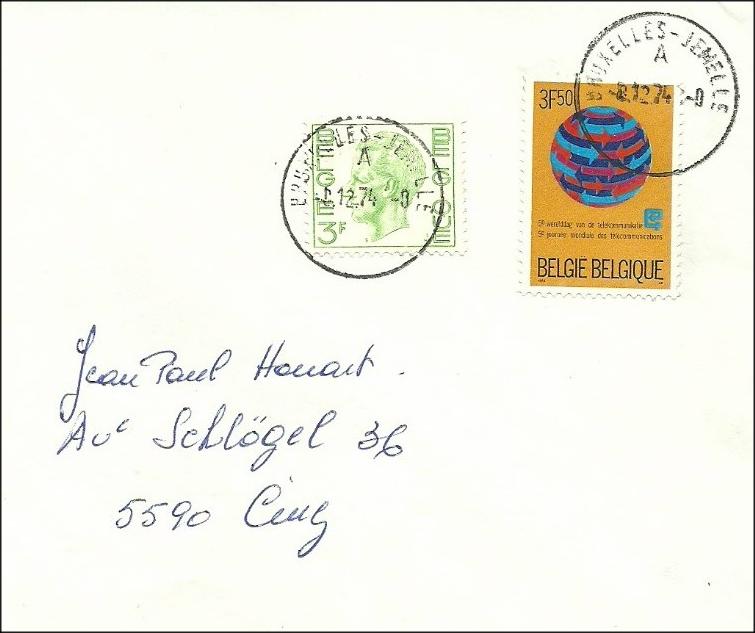 BRUXELLES-JEMELLE
A
-8.12.74 -0
3F50
5e werelddag van de telekommunikatie
5e journée mondiale des télécommunications
BELGIË BELGIQUE
BRUXELLES-JEMELLE
A
12.74 -0
BELGIE
BELGIQUE
3F
Jean Paul Honart.
Ave Schlögel 36
5590 Ciney